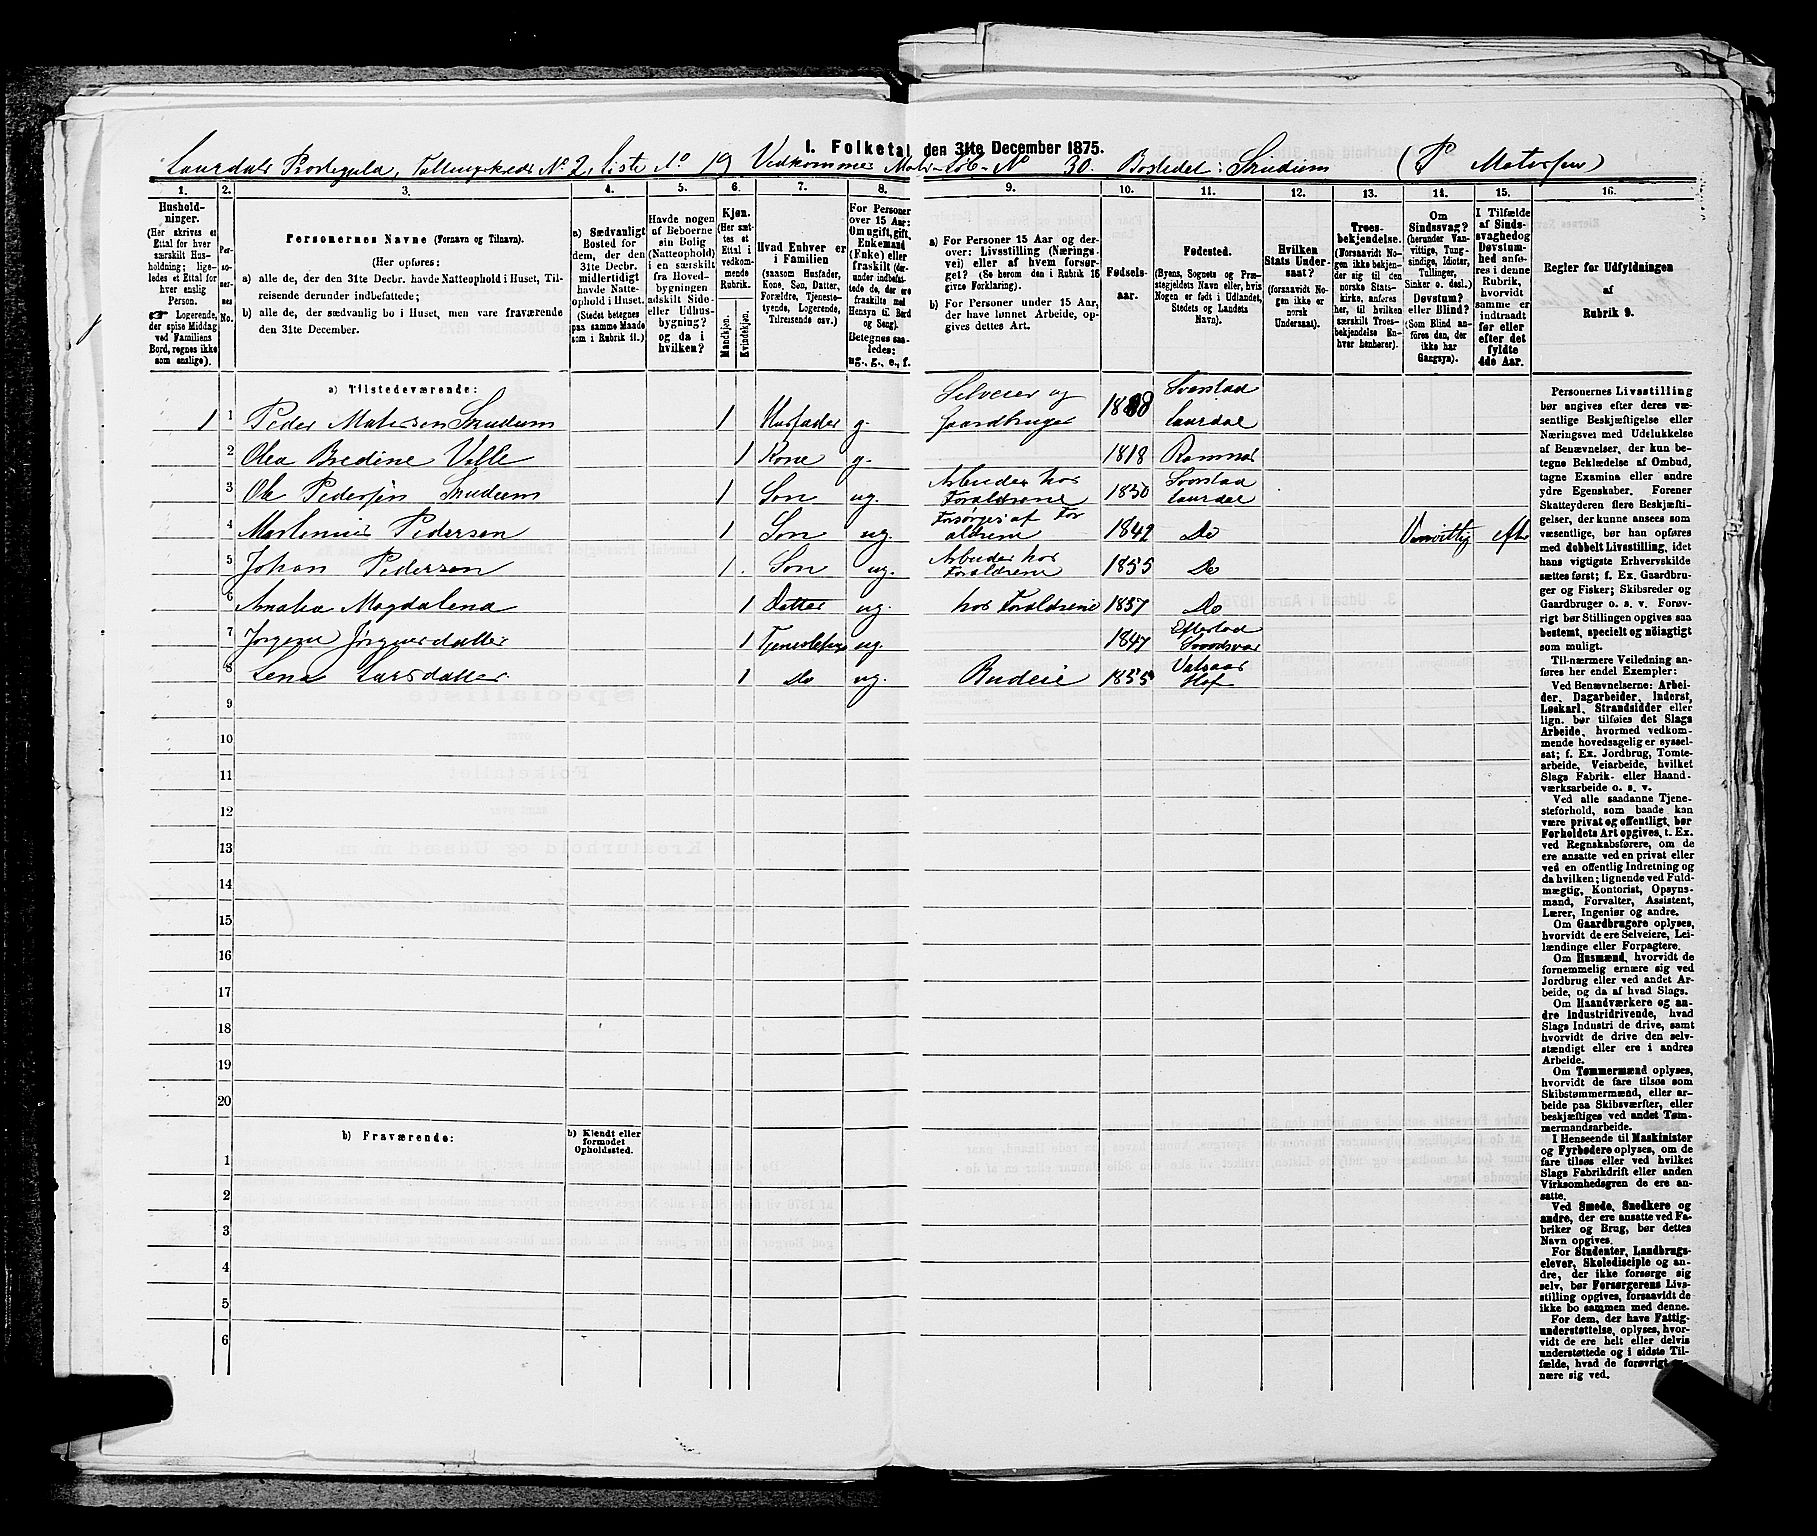 I. Folketal den 31te December 1875.
Laurdals Prestegjeld, Tællingskreds No 2, Liste No 19 Vedkommer Matr.-Løb-No 30. Bostedet: Skudem (P Matersen)
1. 2. 3. 4. 5. 6. 7. 8. 9. 10. 11. 12. 13. 14. 15. 16.
Husholdninger.
(Her skrives et Ettal for hver særskilt Husholdning; ligeledes et Ettal for hver enslig Person.
☛ Logerende, der spise Middag ved Familiens Bord, regnes ikke som enslige.)
Personernes No.
Personernes Navne (Fornavn og Tilnavn).
(Her opføres:
a) alle de, der den 31te Decbr. havde Natteophold i Huset, Tilreisende derunder indbefattede;
b) alle de, der sædvanlig bo i Huset, men vare fraværende den 31te December.
a) Sædvanligt Bosted for dem, der den 31te Decbr. midlertidigt havde Natteophold i Huset. (Stedet betegnes paa samme Maade som i Rubrik 11.)
Havde nogen af Beboerne sin Bolig (Natteophold) i en særskilt fra Hovedbygningen adskilt Side- eller Udhusbygning? og da i hvilken?
Kjøn. (Her sættes et Ettal i vedkommende Rubrik.
Mandkjøn.
Kvindekjøn.
Hvad Enhver er i Familien
(saasom Husfader, Kone, Søn, Datter, Forældre, Tjenestetyende, Logerende, Tilreisende osv.)
For Personer over 15 Aar: Om ugift, gift, Enkemand (Enke) eller fraskilt (derunder indbefattede de, der ere fraskilte med Hensyn til Bord og Seng). Betegnes saaledes: ug., g., e., f.
a) For Personer 15 Aar og derover: Livsstilling (Næringsvei) eller af hvem forsørget? (Se herom den i Rubrik 16 givne Forklaring).
b) For Personer under 15 Aar, der have lønnet Arbeide, opgives dettes Art.
Fødselsaar.
Fødested.
(Byens, Sognets og Præstegjeldets Navn eller, hvis Nogen er født i Udlandet, Stedets og Landets Navn).
Hvilken Stats Undersaat?
(foraavidt Nogen ikke er norsk Undersaat).
Troesbekjendelse.
(Forsaavidt Nogen ikke bekjender sig til den norske Statskirke, anføres her, til hvilken særskilt Troesbekjendelse Enhver henhører).
Om Sindssvag? (herunder Vanvittige, Tungsindige, Idioter, Tullinger, Sinker o. desl.) Døvstum? eller Blind? (Som Blind anføres den, der ikke har Gangsyn).
I Tilfælde af Sindssvaghed og Døvstumhed anføres i denne Rubrik, hvorvidt samme er indtraadt før eller efter det fyldte 4de Aar.
Regler for Udfyldningen af Rubrik 9.
a) Tilstedeværende:
1 1 Peder Matersen Skudem 1 Husfader g. Selveier og Gaardbruger 18 Svarstad Laurdal
2 Olea Bredine Velle 1 Kone g. 1818 Ramnæs
3 Ole Pedersen Skudem 1 Søn ug. Arbeider hos Forældrene 1850 Svarstad Laurdal
4 Martenius Pedersen 1 Søn ug. Forsørges af Forældrene 1842 Do Vanvittig efter
5 Johan Pedersen 1. Søn ug. Arbeider hos Forældrene 1855 Do
6 Amalia Magdalena 1 Datter ug. hos Forældrene 1857 Do
7 Jørgine Jørgensdatter 1 Tjenestepige ug. 1847 Efterstad
8 Lena Larsdatter 1 Do ug. Budeie 1855 Vatsaas Hof
9
10
11
12
13
14
15
16
17
18
19
20
b) Fraværende:
b) Kjendt eller formodet Opholdssted.
1
2
3
4
5
6
Personernes Livsstilling
bør angives efter deres væsentlige Beskjæftigelse eller
Næringsvei med Udelukkelse
af Benævnelser, der kun betegne Beklædelse af Ombud,
tagne Examina eller andre
ydre Egenskaber. Forener
Skatteyderen flere Beskjæftigelser, der kunne ansees som
væsentlige, bør han opføres
med dobbelt Livsstilling, idet
hans vigtigste Erhvervskilde
sættes først; f. Ex. Gaardbruger og Fisker; Skibsreder og
Gaardbruger o. s. v. Forøvrigt bør Stillingen opgives saa
bestemt, specielt og nöiagtigt
som muligt.
Til nærmere Veiledning anføres her endel Exempler:
Ved Benævnelserne: Arbeider, Dagarbeider, Inderst,
Løskarl, Strandsidder eller
lign. bør tilføies det Slags
Arbeide, hvormed vedkommende hovedsagelig er sysselsat; f. Ex. Jordbrug, Tomtearbeide, Veiarbeide, hvilket
Slags Fabrik- eller Haandværksarbeide o. s. v.
Ved alle saadanne Tjenesteforhold, som baade kan
være privat og offentligt, bør
Forholdets Art opgives, t. Ex.
ved Regnskabsførere, om de
ere ansatte ved en privat eller
ved en offentlig Indretning og
da hvilken; lignende ved Fuldmægtig, Kontorist, Opsynsmand, Forvalter, Assistent,
Lærer, Ingeniør og andre.
Om Gaardbrugere oplyses,
hvorvidt de ere Selveiere, Leilændinge eller Forpagtere.
Om Husmænd, hvorvidt de
fornemmelig ernære sig ved
Jordbrug eller ved andet Arbeide, og da af hvad Slags.
Om Haandværkere og andre Industridrivende, hvad
Slags Industri de drive, samt
hvorvidt de drive den selvstændigt eller ere i andres
Arbeide.
Om Tømmermænd oplyses,
hvorvidt de fare tilsøs som
Skibstømmermænd, eller arbeide paa Skibsværfter, eller
beskjæftiges ved andet Tømmermandsarbeide.
I Henseende til Maskinister
og Fyrbødere oplyses, om de
fare tilsøs eller ved hvilket
Slags Fabrikdrift eller anden
Virksomhedsgren de ere ansatte.
Ved Smede, Snedkere og
andre, der ere ansatte ved Fabriker og Brug, bør dettes
Navn opgives.
For Studenter, Landbrugselever, Skoledisciple og andre, der ikke forsørge sig
selv, bør Forsørgerens Livsstilling opgives, forsaavidt de
ikke bo sammen med denne.
For dem, der have Fattigunderstøttelse, oplyses, hvorvidt de ere helt eller delvis
understøttede og i sidste Tilfælde, hvad de forøvrigt ernære sig ved.